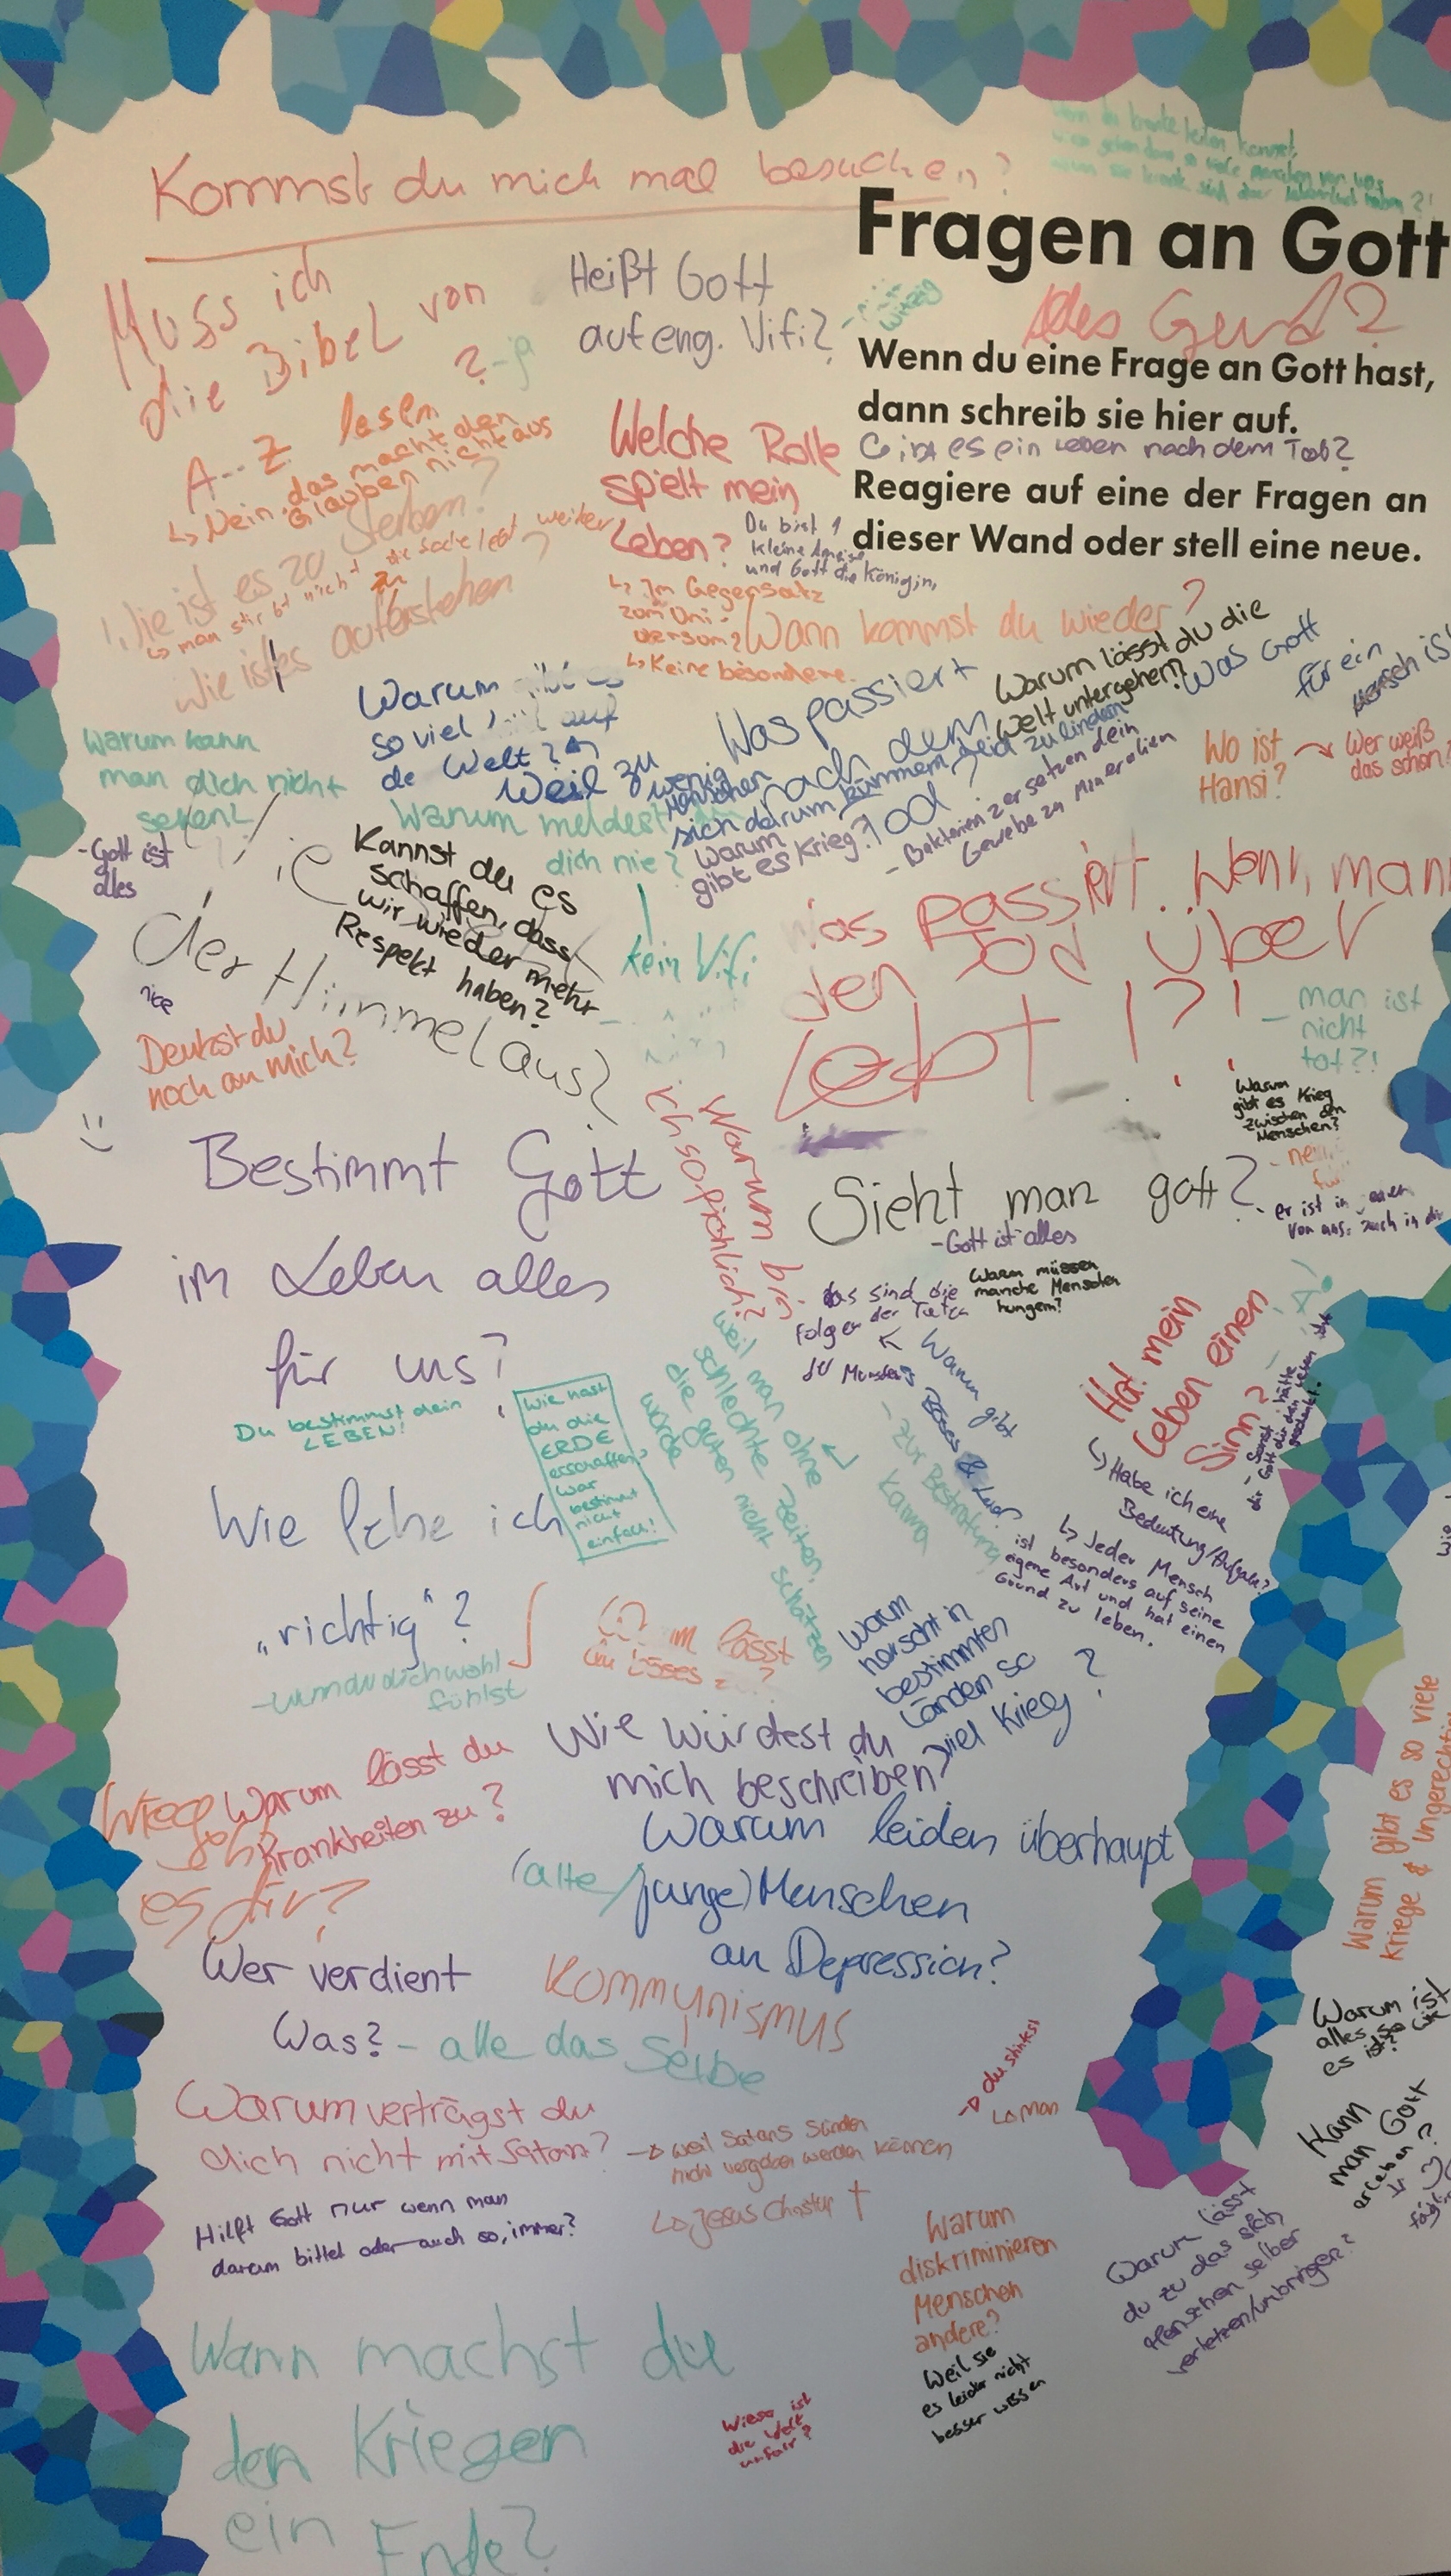 Kommst du mich mal besuchen?
wenn du kranke heilen kannst,
Fragen an Gott
Alles Gend?
Wenn du eine Frage an Gott hast,
dann schreib sie hier auf.
Gibt es ein Leben nach dem Tod?
Reagiere auf eine der Fragen an
dieser Wand oder stell eine neue.
Muss ich
die Bibel von
A--Z lesen
?
↳ Nein, das macht den
Glauben nicht aus
Heißt Gott
auf eng. Vifi?
witzig
Welche Rolle
spielt mein
Leben?
Du bist 1
kleine Ameise
und Gott die Königin,
↳ Im Gegensatz
zum Uni-
versum?
↳ Keine besondere.
Wie ist es zu sterben?
↳ man stirbt nicht die Seele lebt weiter
Wie ist es aufzuerstehen?
Wann kommst du wieder?
Warum lässt du die
Welt untergehen?
Was Gott
für ein
Mensch ist
Warum gibt es
so viel auf
de Welt?
Weil zu wenig
Menschen
sich darum kümmern Leid zu lindern
Was passiert
nach dem
Tod?
- Bakterien zersetzen dein
Gewebe zu Mineralien
Wo ist
Hansi?
Wer weiß
das schon?
Warum kann
man dich nicht
sehen?
- Gott ist
alles
Warum meldest
dich nie?
kein Vifi
Warum
gibt es Krieg?
Kannst du es
schaffen, dass
wir wieder mehr
Respekt haben?
Wie
der Himmel aus?
nice
Denkst du
noch an mich?
Was passiert wenn man
den Tod über
lebt!?!
- man ist
nicht
tot?!
Warum
gibt es Krieg
zwischen den
Menschen?
Bestimmt Gott
im Leben alles
für uns?
Du bestimmst dein
LEBEN!
Warum bin
ich so
Sieht man gott?
- Gott ist alles
- er ist in
von uns. auch in dir
Warum müssen
manche Menschen
hungern?
das sind die
Folgen der Taten
der Menschen
Warum gibt
es Böses &
- Zur Bestrafung
Karma
weil man ohne
schlechte Zeiten,
die guten nicht schätzen
würde
Hat mein
Leben einen
Sinn?
↳ Habe ich eine
Bedeutung/Aufgabe?
↳ Jeder Mensch
ist besonders auf seine
eigene Art und hat einen
Grund zu leben.
Wie hast
du die
ERDE
erschaffen?
war
bestimmt
nicht
einfach!
Wie lebe ich
„richtig“?
- wenn du dich wohl
fühlst
lässt
Böses
Warum
herscht in
bestimmten
Länden so
viel Krieg?
Wie würdest du
mich beschreiben?
Warum lässt du
Krankheiten zu?
Wie
geht
es dir?
Warum leiden überhaupt
(alte/junge) Menschen
an Depression?
Warum gibt es so viele
Kriege &
Wer verdient
Was? - alle das Selbe
Kommunismus
Warum ist
alles so wie
es ist?
Warum verträgst du
dich nicht mit Satan?
→ weil Satans Sünden
nicht vergeben werden können
↳ Jesus Christus †
→ du stinkst
Kann
man Gott
erleben?
Hilft Gott nur wenn man
darum bittet oder auch so, immer?
Warum
diskriminieren
Menschen
andere?
Weil sie
es leider nicht
besser wissen
Warum lässt
du zu das sich
Menschen selber
verletzen/umbringen?
Wann machst du
den Kriegen
ein Ende?
Wieso ist
die Welt
unfair?